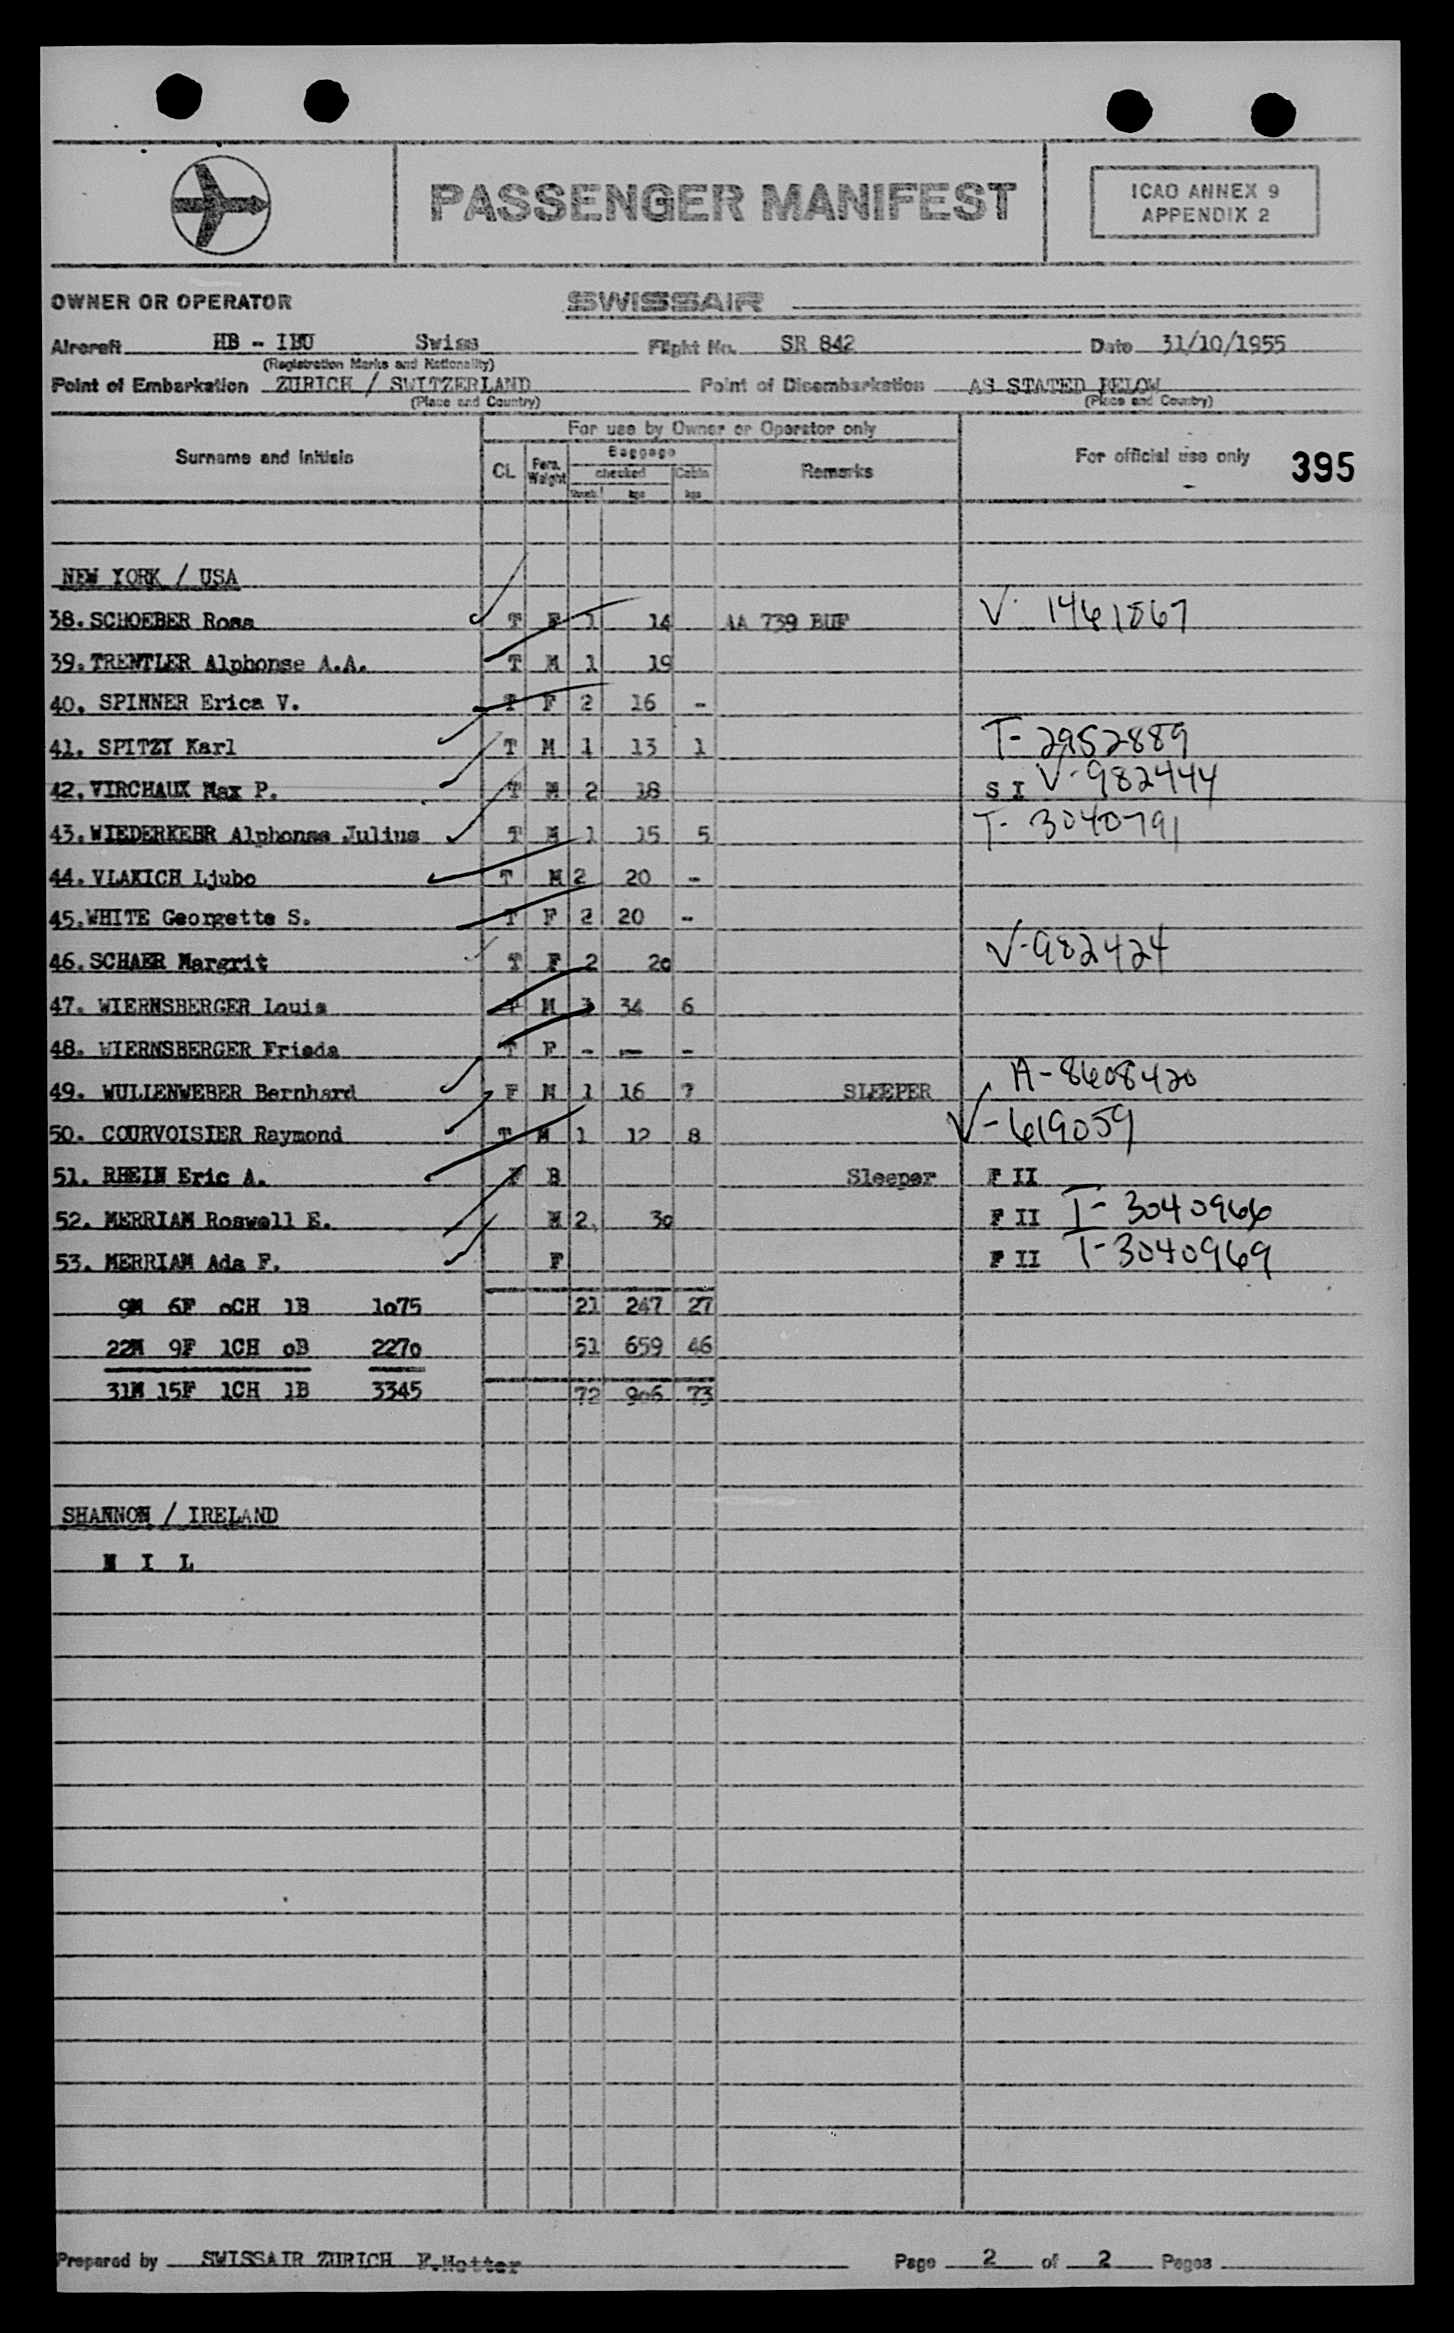 PASSENGER MANIFEST
ICAO ANNEX 9
APPENDIX 2
OWNER OR OPERATOR SWISSAIR
Aircraft HB - IBU Swiss Flight No. SR 842 Date 31/10/1955
(Registration Marks and Nationality)
Point of Embarkation ZURICH / SWITZERLAND Point of Disembarkation AS STATED BELOW
(Place and Country) (Place and Country)
For use by Owner or Operator only
Surname and initials CL Pers. Weight Baggage checked Cabin Remarks For official use only 395
kgs kgs
NEW YORK / USA
38. SCHOEBER Rosa T F 1 14 AA 739 BUF V- 1461867
39. TRENTLER Alphonse A.A. T M 1 19
40. SPINNER Erica V. T F 2 16 -
41. SPITZY Karl T M 1 13 1 T- 2952889
42. VIRCHAUX Max P. T M 2 18 S I V-982444
43. WIEDERKEHR Alphonse Julius T M 1 15 5 T- 3040791
44. VLAKICH Ljubo T M 2 20 -
45. WHITE Georgette S. T F 2 20 -
46. SCHAER Margrit T F 2 20 V-982424
47. WIERNSBERGER Louis T M 3 34 6
48. WIERNSBERGER Frieda T F - - -
49. WULLENWEBER Bernhard F M 1 16 7 SLEEPER A-8608420
50. COURVOISIER Raymond T M 1 12 8 V-619059
51. RHEIN Eric A. F B Sleeper F II
52. MERRIAM Roswell E. M 2 30 F II T- 3040966
53. MERRIAM Ada F. F F II T-3040969
9M 6F oCH 1B 1075 21 247 27
22M 9F 1CH oB 2270 51 659 46
31M 15F 1CH 1B 3345 72 906 73
SHANNON / IRELAND
N I L
Prepared by SWISSAIR ZURICH Page 2 of 2 Pages